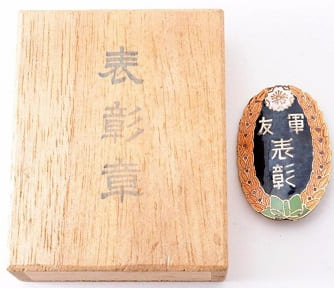 表彰章
軍友
表彰